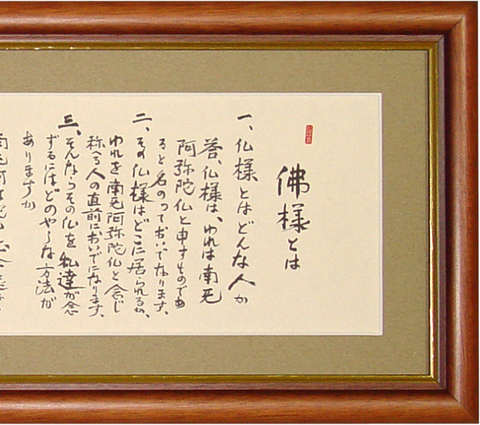 佛様とは
一、仏様とはどんな人か
答、仏様は、われは南无
阿弥陀仏と申すものであ
ると名のっておいでなります、
二、その仏様は、どこに居られるか、
われを南无阿弥陀仏と念じ
称る人の直前においでになります、
三、そんならその仏を私達が念
ずるにはどのやうな方法が
ありますか